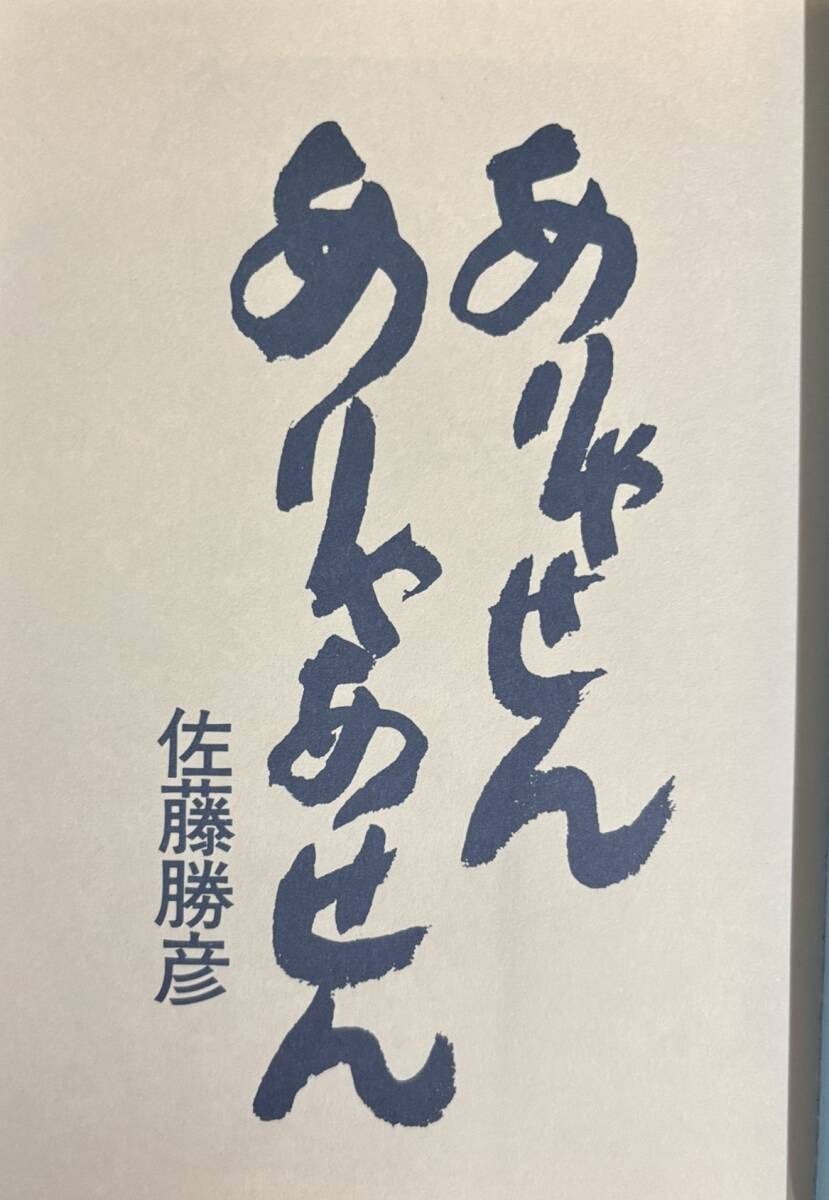 ありゃせん
ありゃあせん
佐藤勝彦